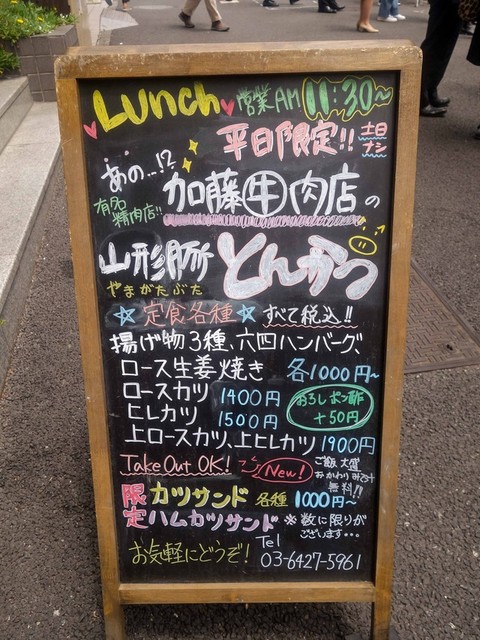 Lunch 営業AM 11:30〜
平日限定!! 土日ナシ
あの..!?
有名精肉店!! 加藤牛肉店の
山形豚 とんかつ
やまがたぶた
☆定食各種☆ すべて税込!!
揚げ物3種、六四ハンバーグ、
ロース生姜焼き 各1000円〜
ロースカツ 1400円
ヒレカツ 1500円
おろしポン酢 +50円
上ロースカツ、上ヒレカツ 1900円
Take Out OK! New!
ご飯大盛
無料!!
限定 カツサンド 各種 1000円〜
ハムカツサンド ※数に限りがございます…
お気軽にどうぞ! Tel 03-6427-5961